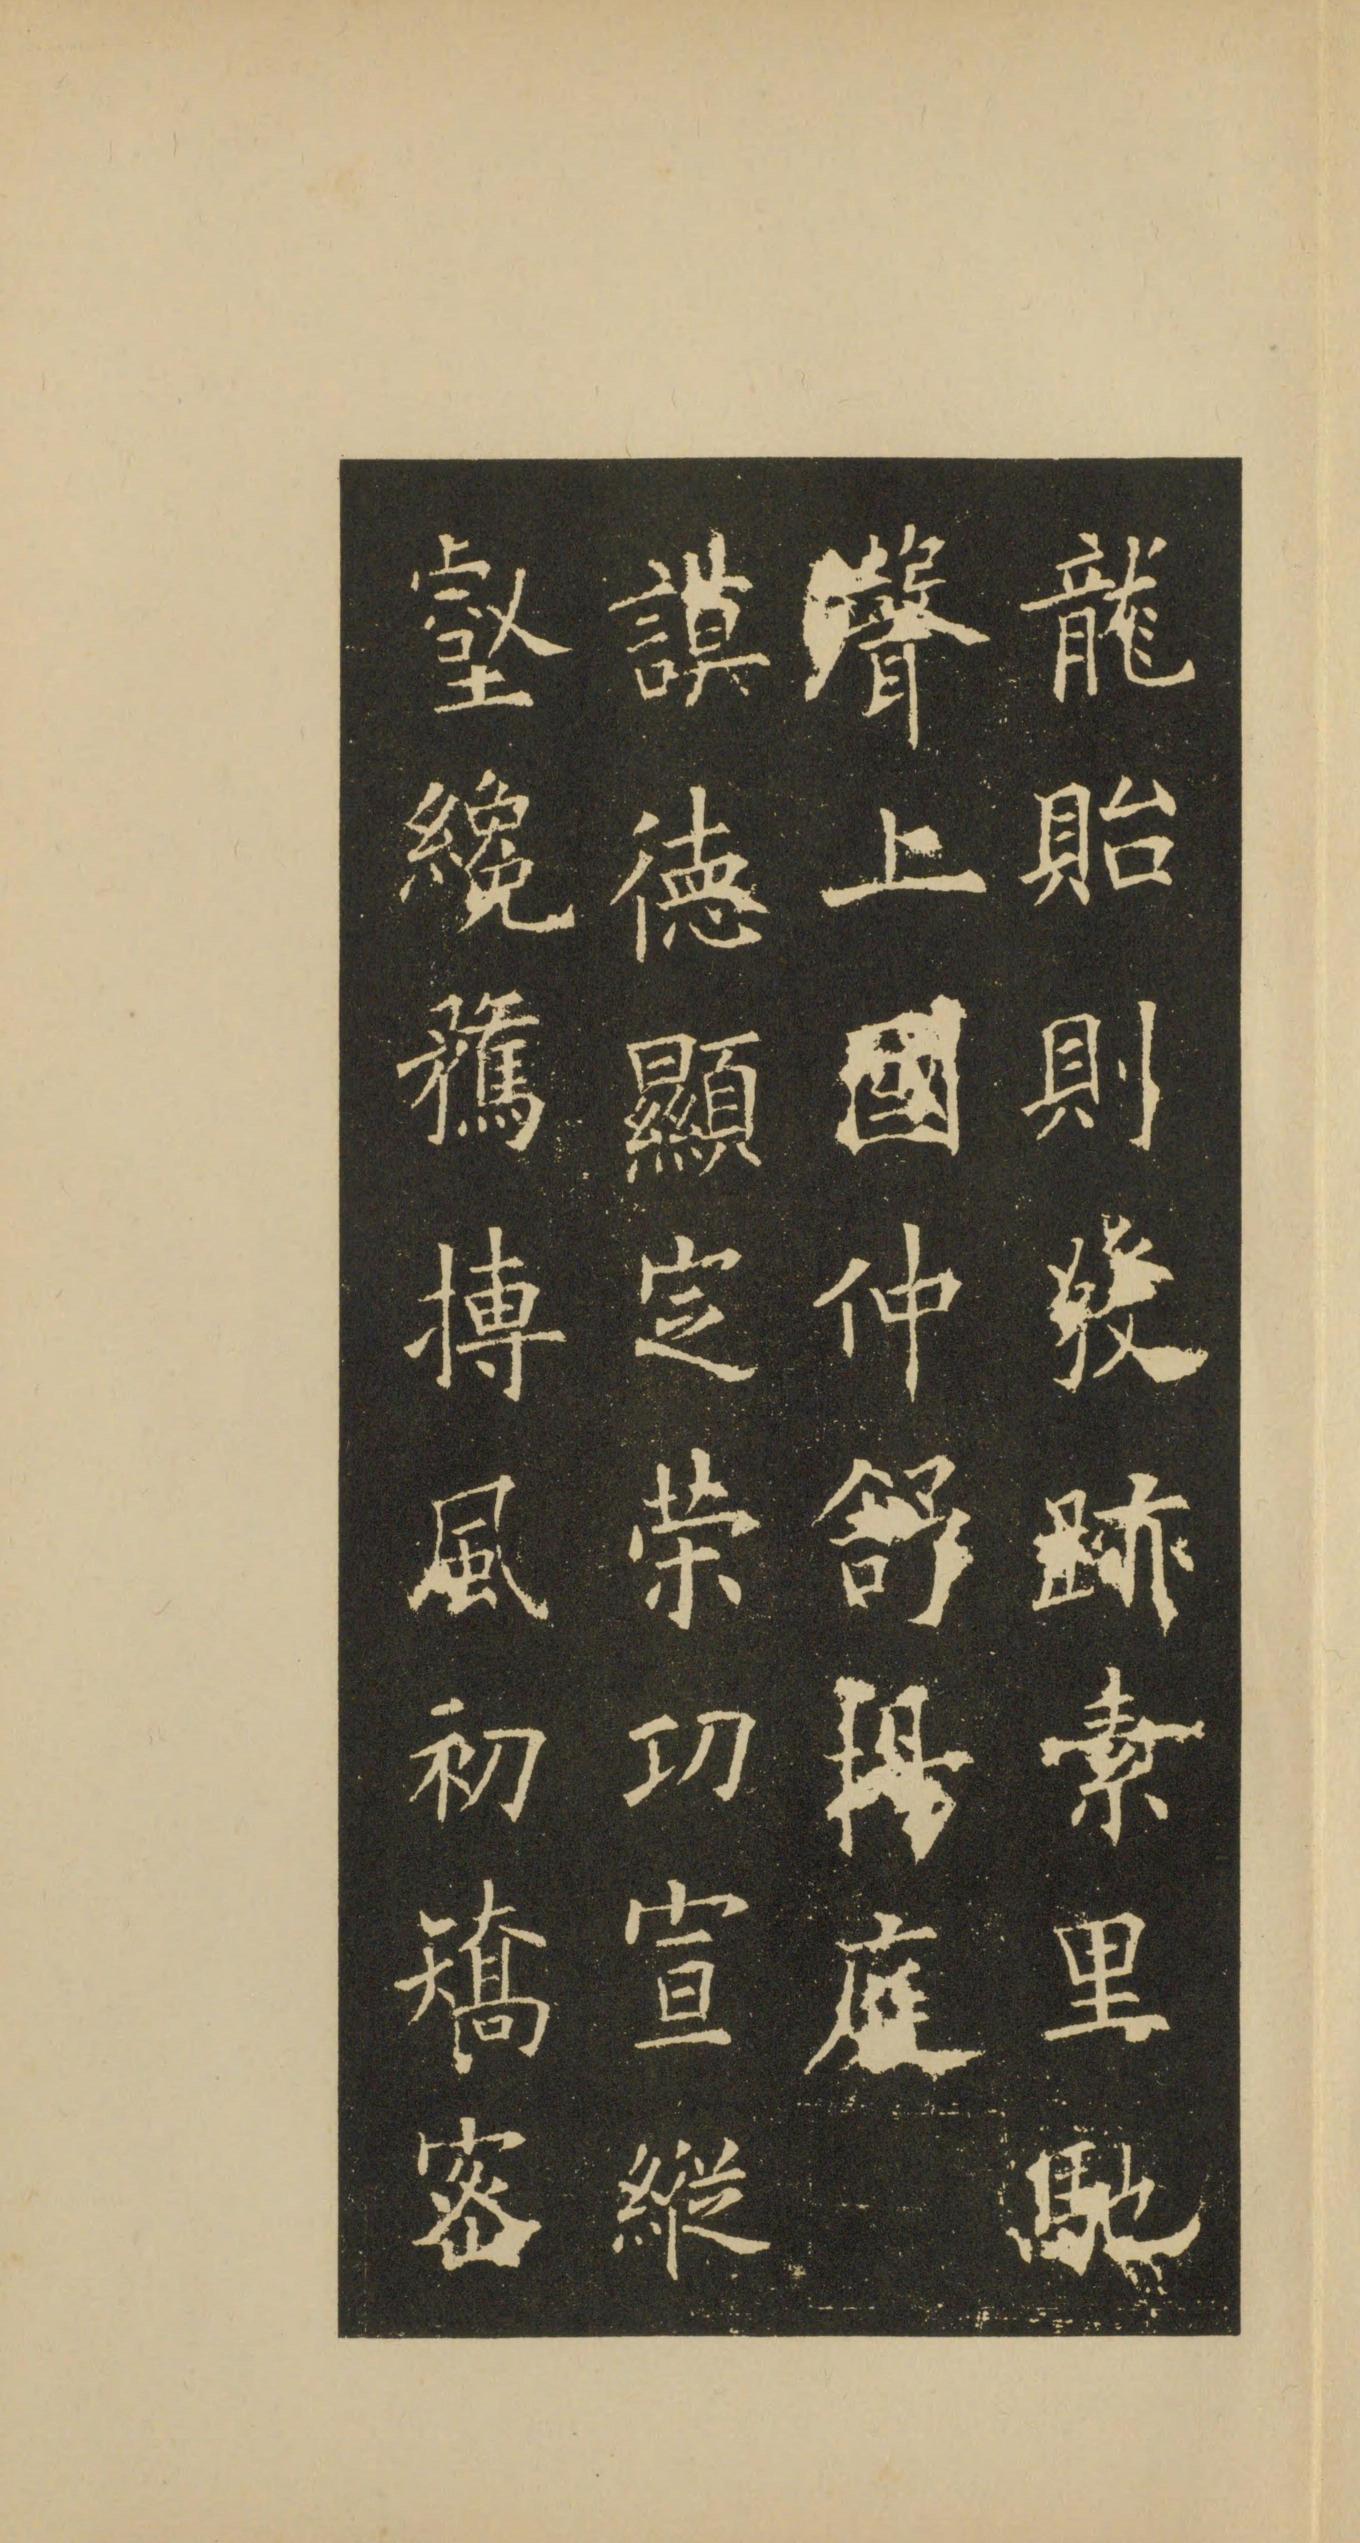 龍貽則發跡素里馳
聲上國仲舒揚庭
謨德顯定榮功宣縱
壑纔騖摶風初矯密